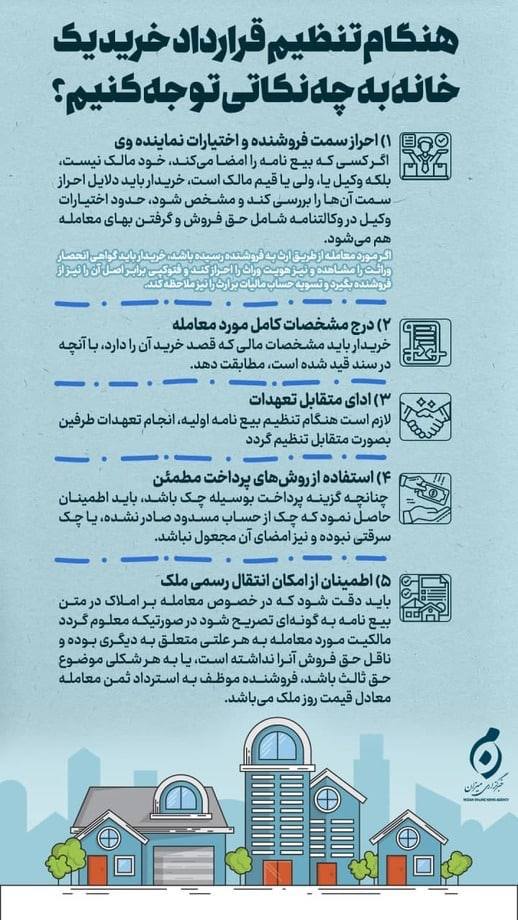 هنگام تنظیم قرارداد خرید یک
خانه به چه نکاتی توجه کنیم؟
۱) احراز سمت فروشنده و اختیارات نماینده وی
اگر کسی که بیع نامه را امضا می‌کند، خود مالک نیست،
بلکه وکیل یا، ولی یا قیم مالک است، خریدار باید دلایل احراز
سمت آن‌ها را بررسی کند و مشخص شود، حدود اختیارات
وکیل در وکالتنامه شامل حق فروش و گرفتن بهای معامله
هم می‌شود.
اگر مورد معامله از طریق ارث به فروشنده رسیده باشد، خریدار باید گواهی انحصار
وراثت را مشاهده و نیز هویت وراث را احراز کند و فتوکپی برابر اصل آن را نیز از
فروشنده بگیرد و تسویه حساب مالیات بر ارث را نیز ملاحظه کند.
۲) درج مشخصات کامل مورد معامله
خریدار باید مشخصات مالی که قصد خرید آن را دارد، با آنچه
در سند قید شده است، مطابقت دهد.
۳) ادای متقابل تعهدات
لازم است هنگام تنظیم بیع نامه اولیه، انجام تعهدات طرفین
بصورت متقابل تنظیم گردد
۴) استفاده از روش‌های پرداخت مطمئن
چنانچه گزینه پرداخت بوسیله چک باشد، باید اطمینان
حاصل نمود که چک از حساب مسدود صادر نشده، یا چک
سرقتی نبوده و نیز امضای آن مجعول نباشد.
۵) اطمینان از امکان انتقال رسمی ملک
باید دقت شود که در خصوص معامله بر املاک در متن
بیع نامه به گونه‌ای تصریح شود در صورتیکه معلوم گردد
مالکیت مورد معامله به هر علتی متعلق به دیگری بوده و
ناقل حق فروش آنرا نداشته است، یا به هر شکلی موضوع
حق ثالث باشد، فروشنده موظف به استرداد ثمن معامله
معادل قیمت روز ملک می‌باشد.
خبرگزاری میزان
MIZAN ONLINE NEWS AGENCY